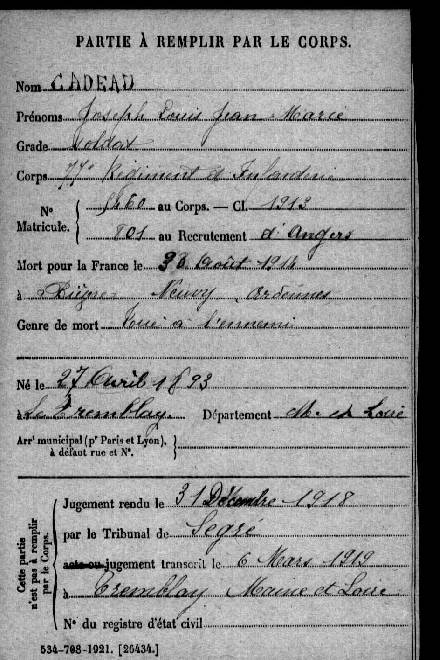 PARTIE À REMPLIR PAR LE CORPS.
Nom CADEAU
Prénoms Joseph Louis Jean Marie
Grade Soldat
Corps 77e Régiment d'Infanterie
N° Matricule. 5460 au Corps. — Cl. 1913
801 au Recrutement d'Angers
Mort pour la France le 30 Août 1914
à Novy Ardennes
Genre de mort Tué à l'ennemi
Né le 27 Avril 1893
à Le Tremblay Département M. et Loire
Arrt municipal (pr Paris et Lyon), à défaut rue et N°.
Cette partie n'est pas à remplir par le Corps.
Jugement rendu le 31 Décembre 1918
par le Tribunal de Segré
acte ou jugement transcrit le 6 Mars 1919
à Tremblay Maine et Loire
N° du registre d'état civil
534-708-1921. [26434.]